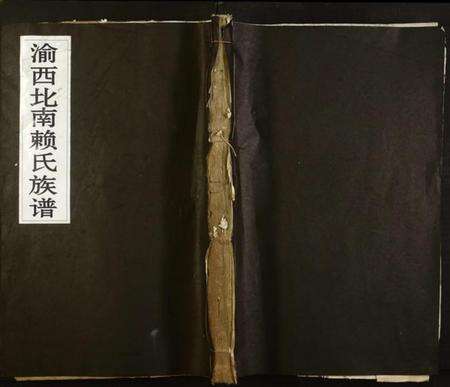 渝西北南赖氏族谱